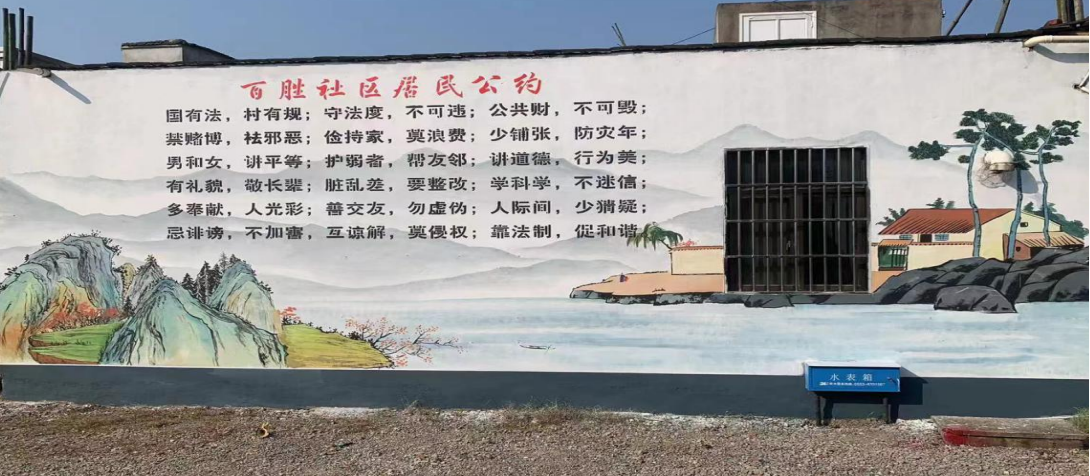 百胜社区居民公约
国有法，村有规；守法度，不可违；公共财，不可毁；
禁赌博，祛邪恶；俭持家，莫浪费；少铺张，防灾年；
男和女，讲平等；护弱者，帮友邻；讲道德，行为美；
有礼貌，敬长辈；脏乱差，要整改；学科学，不迷信；
多奉献，人光彩；善交友，勿虚伪；人际间，少猜疑；
忌诽谤，不加害，互谅解，莫侵权；靠法制，促和谐
水表箱